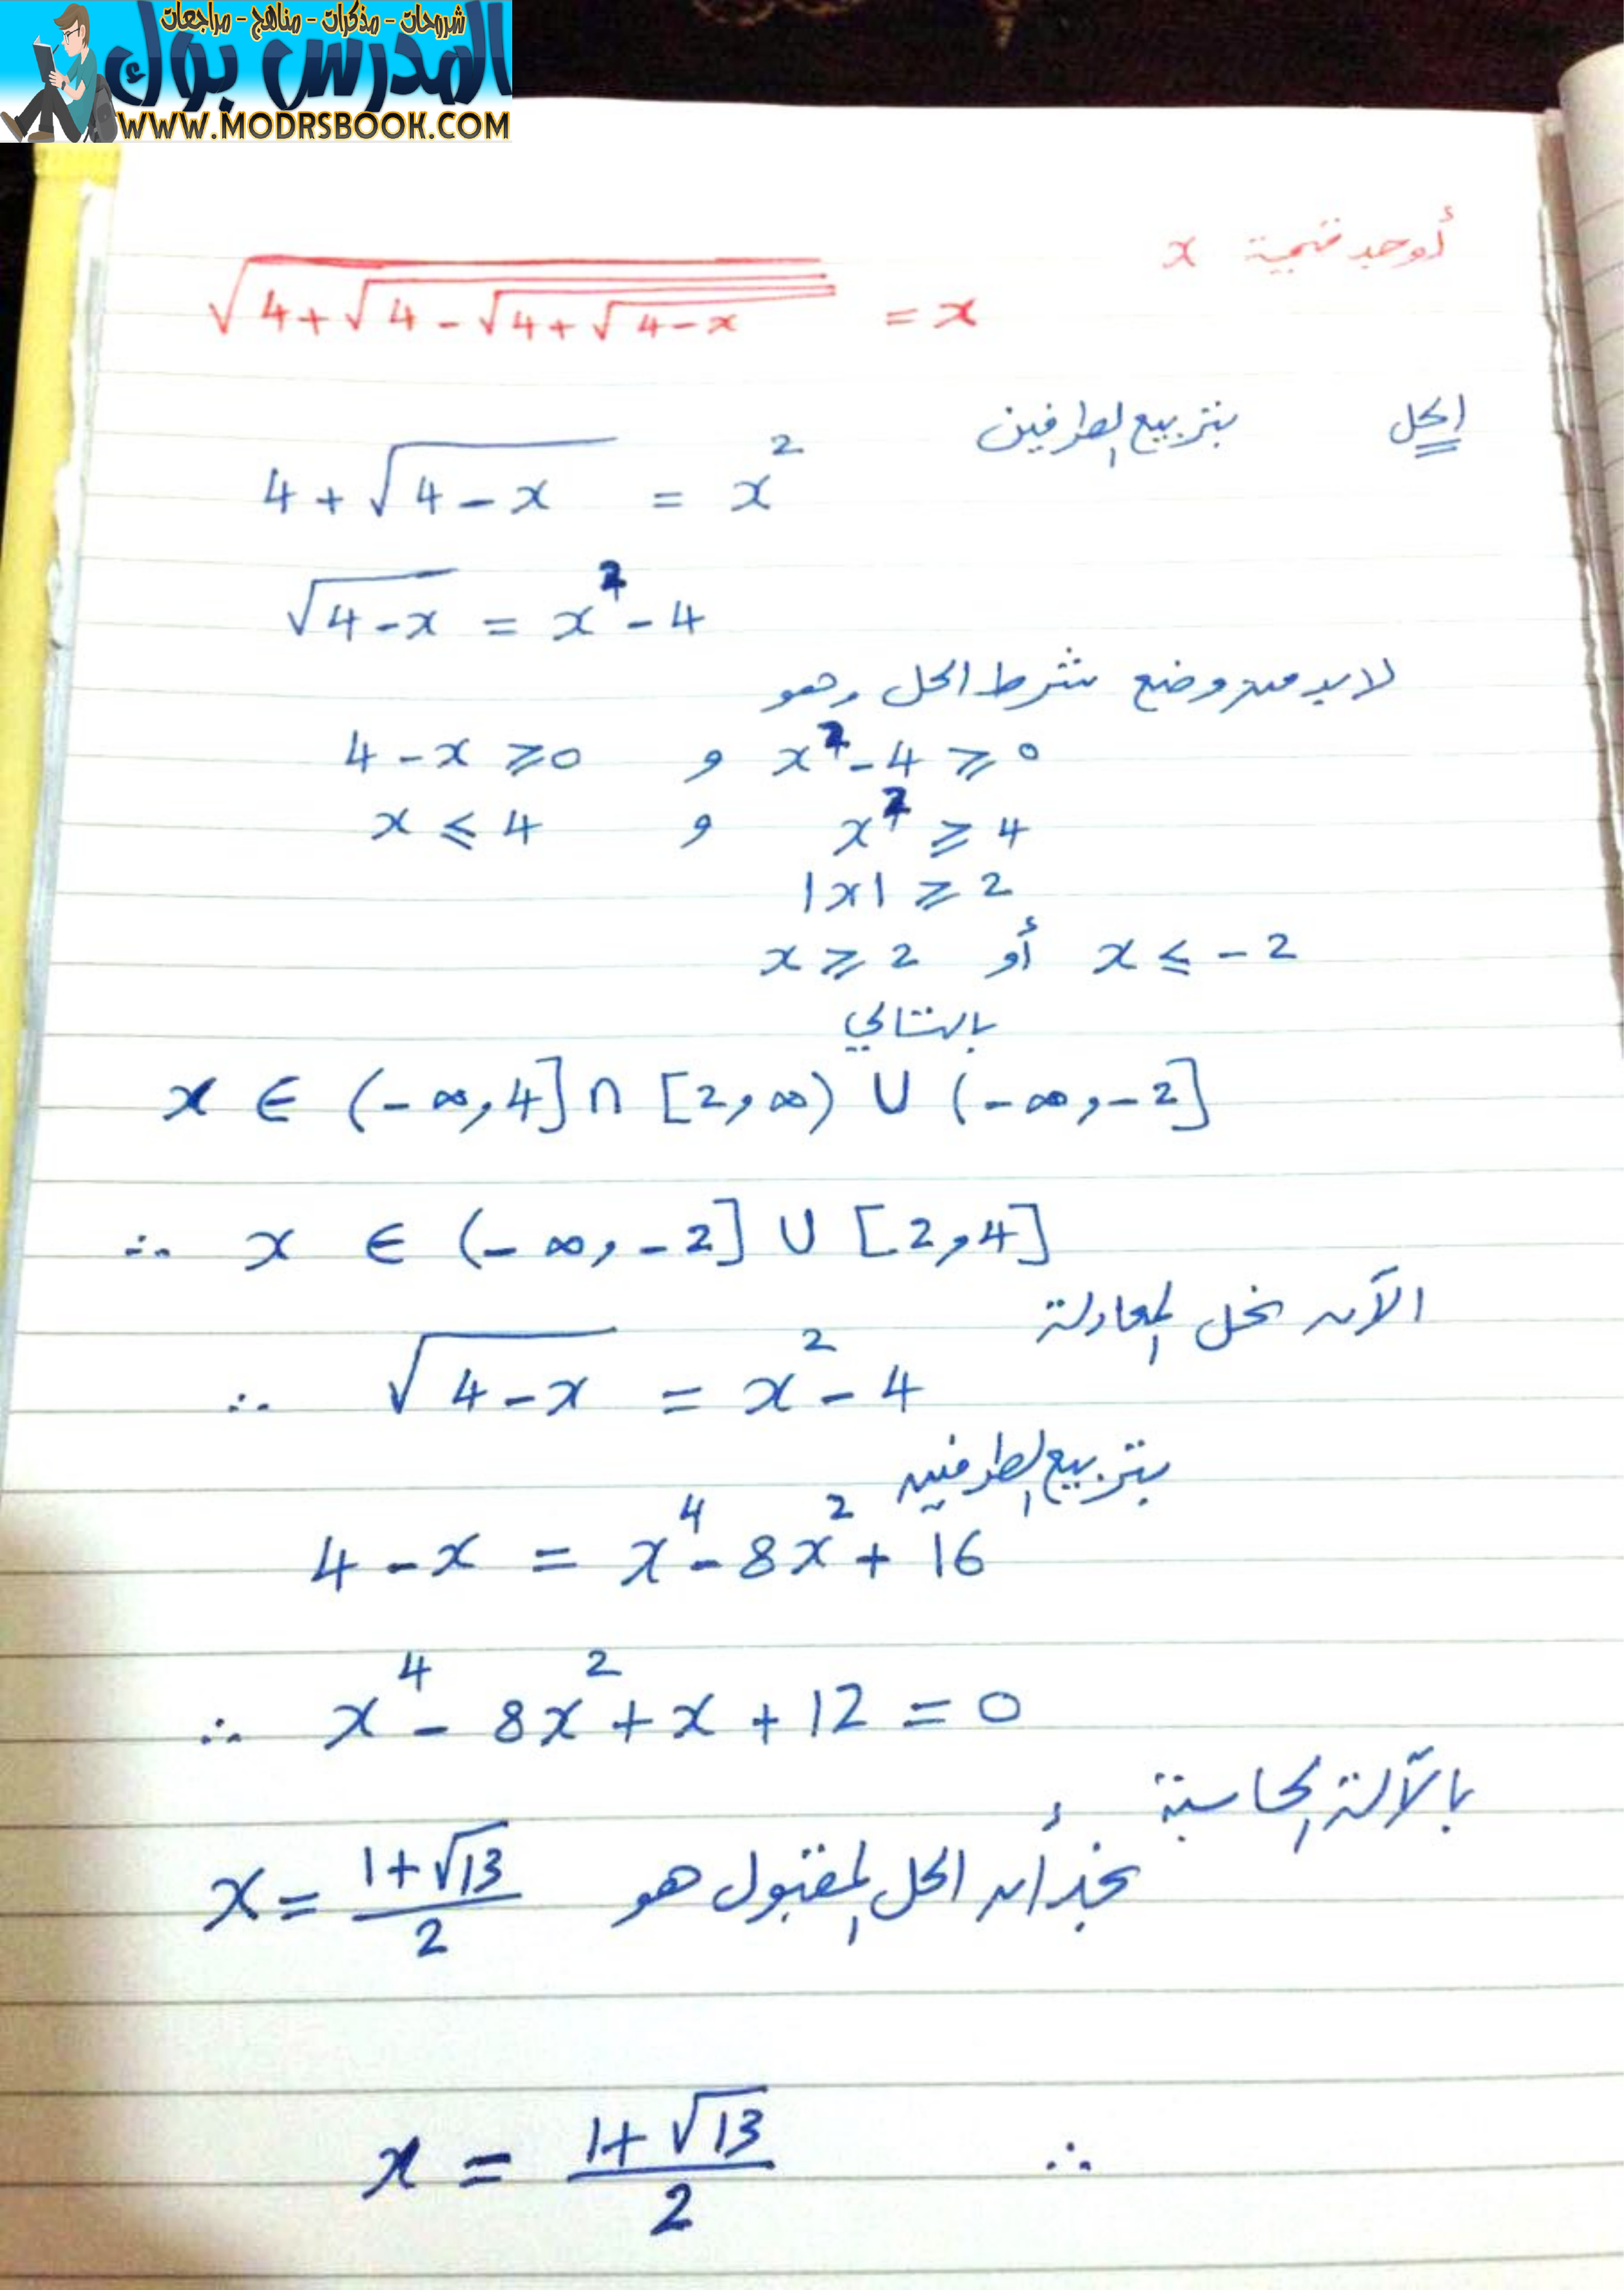 شروحات - مذكرات - مناهج - مراجعات
المدرس بوك
WWW.MODRSBOOK.COM
أوجد قيمة x
√(4+√(4-√(4+√(4-x)))) = x
الحل بتربيع الطرفين
4+√(4-x) = x²
√(4-x) = x²-4
لابد من وضع شرط الحل وهو
4-x ⩾ 0 و x²-4 ⩾ 0
x ⩽ 4 و x² ⩾ 4
|x| ⩾ 2
x ⩾ 2 أو x ⩽ -2
بالتالي
x ∈ (-∞,4] ∩ [2,∞) ∪ (-∞,-2]
∴ x ∈ (-∞,-2] ∪ [2,4]
الآن نحل المعادلة
∴ √(4-x) = x²-4
بتربيع الطرفين
4-x = x⁴-8x²+16
∴ x⁴-8x²+x+12 = 0
بالآلة الحاسبة
نجد أن الحل المقبول هو x = (1+√13)/2
∴ x = (1+√13)/2